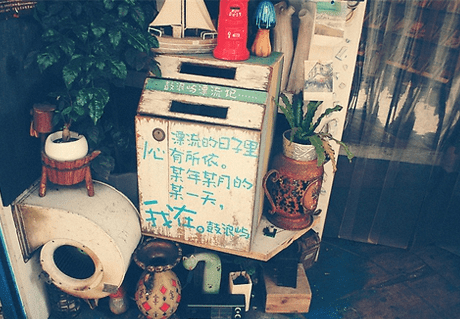 鼓浪屿漂流记......
漂流的日子里
心有所依。
某年某月的
某一天，
我在。鼓浪屿